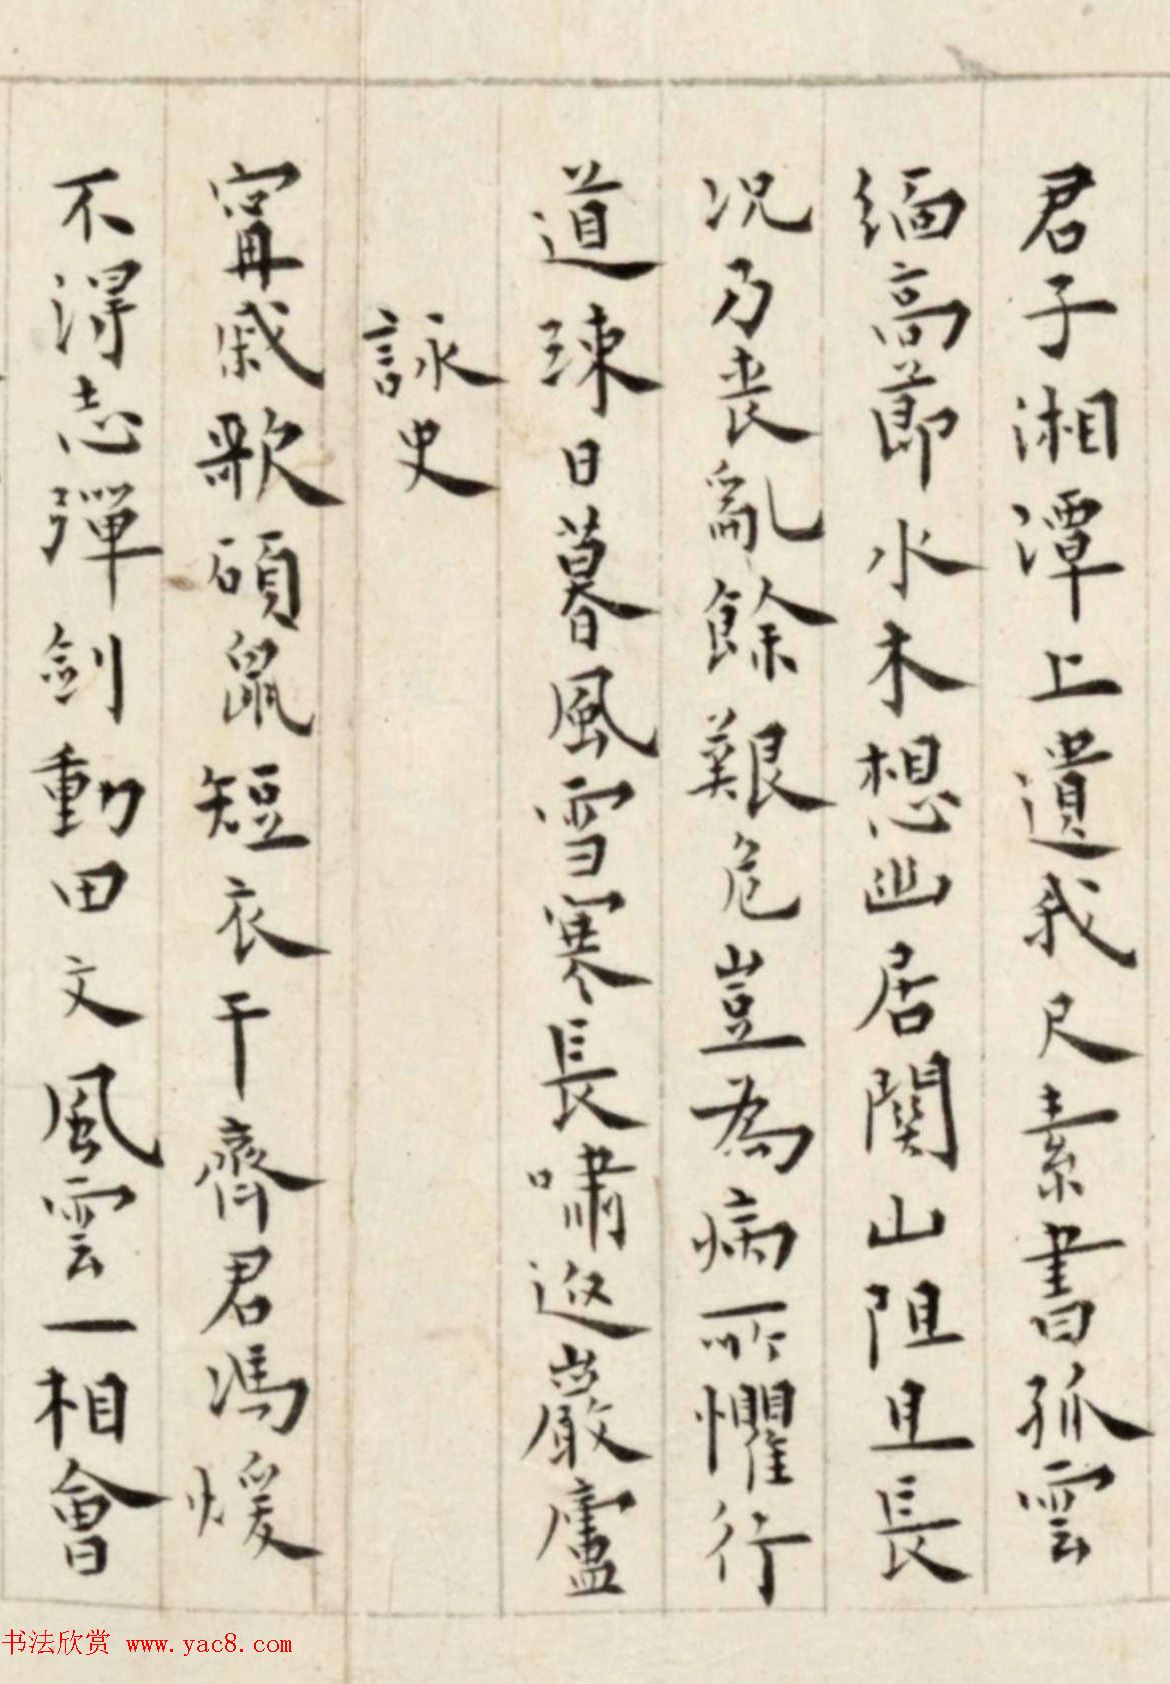 君子湘潭上遺我尺素書孤雲
緬高節水木想幽居關山阻且長
况乃喪亂餘艱危豈為病所懼行
道踈日暮風雪寒長嘯返巖廬
詠史
甯戚歌碩鼠短衣干齊君馮煖
不得志彈劍動田文風雲一相會
书法欣赏 www.yac8.com